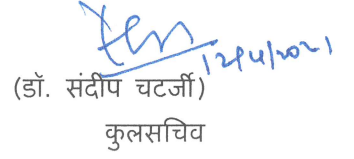 12/4/2021
(डॉ. संदीप चटर्जी)
कुलसचिव